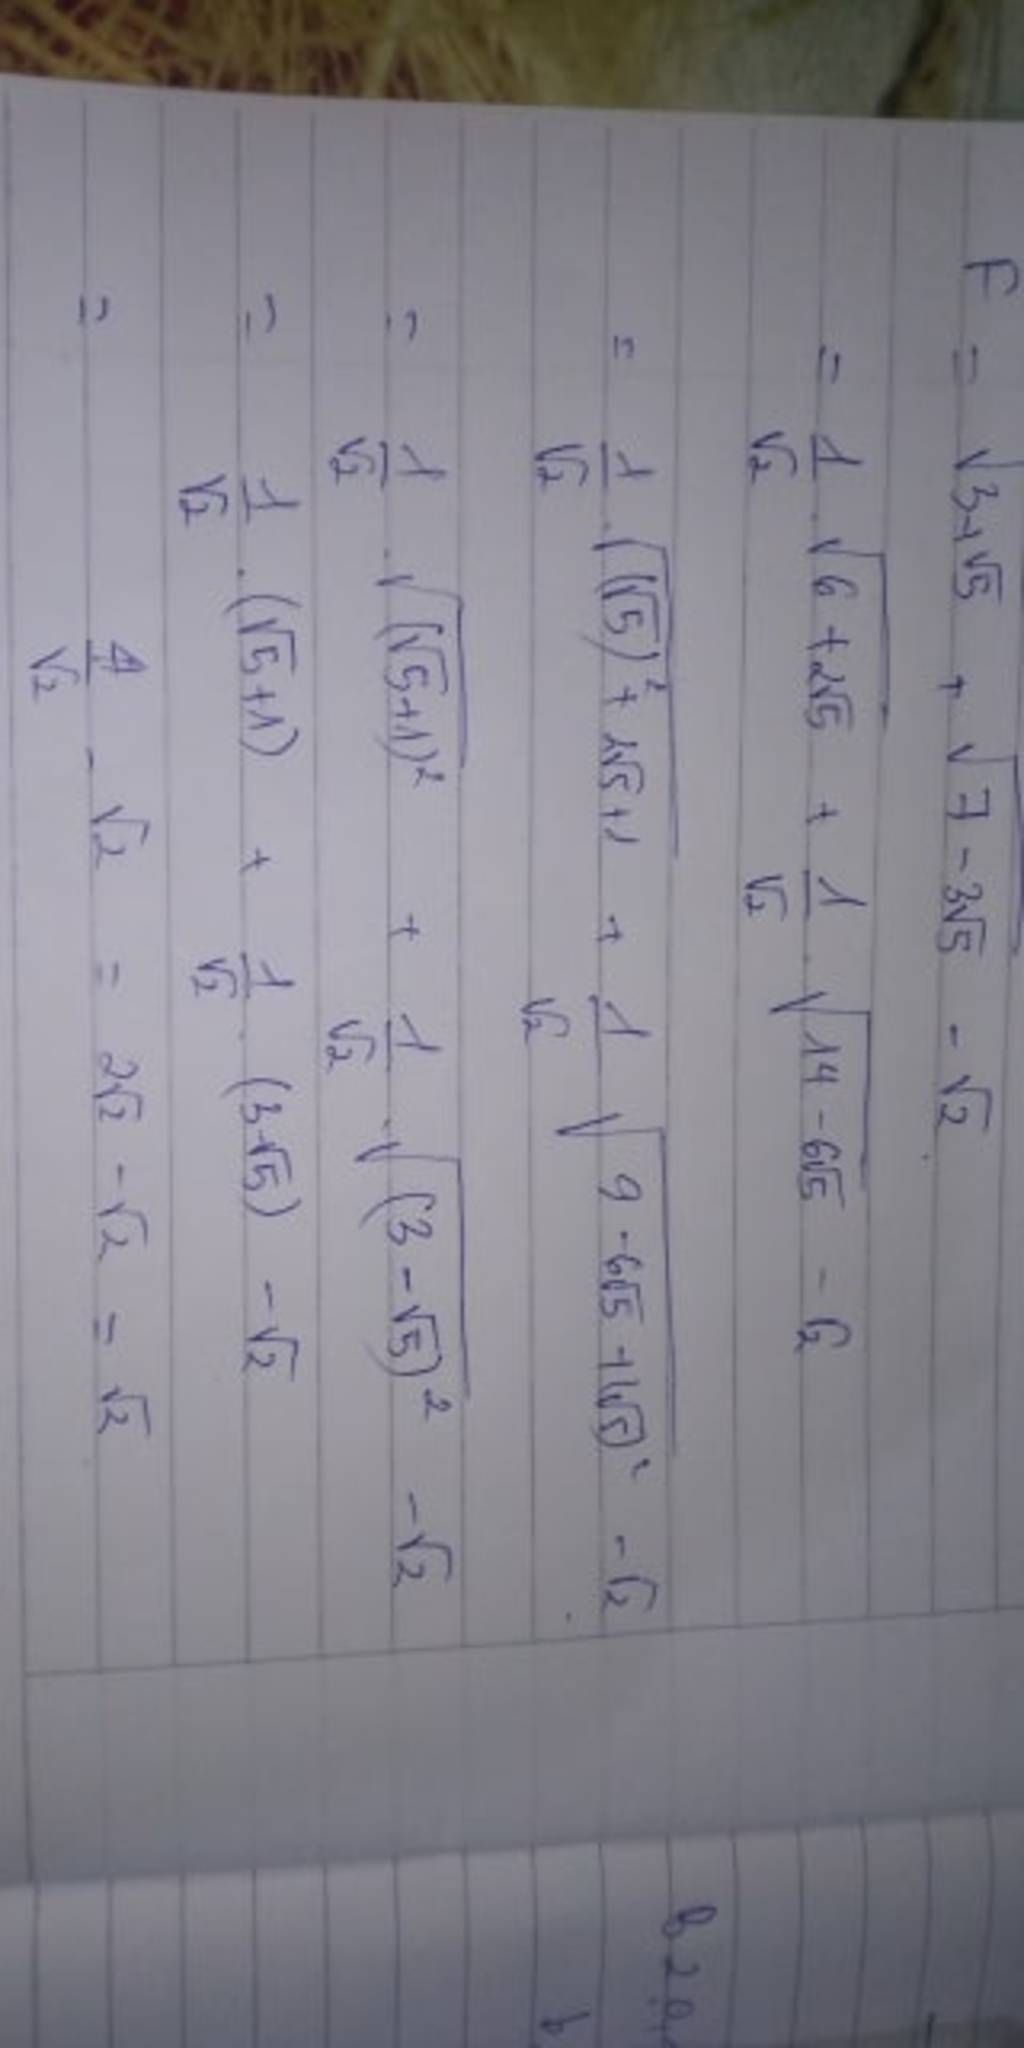 F = √(3+√5) + √(7-3√5) - √2
= 1/√2 . √(6+2√5) + 1/√2 . √(14-6√5) - √2
= 1/√2 . √((√5)²+2√5+1) + 1/√2 √(9-6√5+(√5)²) - √2
= 1/√2 . √((√5+1)²) + 1/√2 . √((3-√5)²) - √2
= 1/√2 . (√5+1) + 1/√2 . (3-√5) - √2
= 4/√2 - √2 = 2√2 - √2 = √2